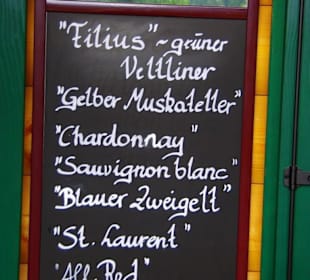 "Filius" ~ grüner
Veltliner
"Gelber Muskateller"
"Chardonnay"
"Sauvignon blanc"
"Blauer Zweigelt"
"St. Laurent"
"All. Red"